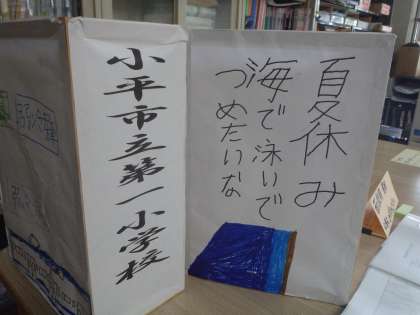 夏休み
海で泳いで
つめたいな
小平市立第一小学校